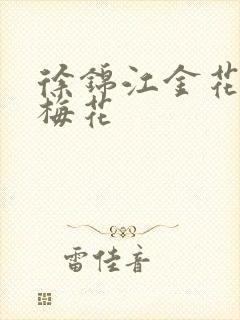 徐锦江金花
梅花
雷佳音